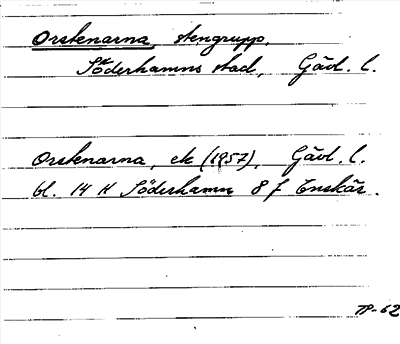 Orstenarna, stengrupp,
Söderhamns stad, Gävl. l.
Orstenarna, ek (1957), Gävl. l.
bl. 14 H Söderhamn 8 f Enskär.
TP-62